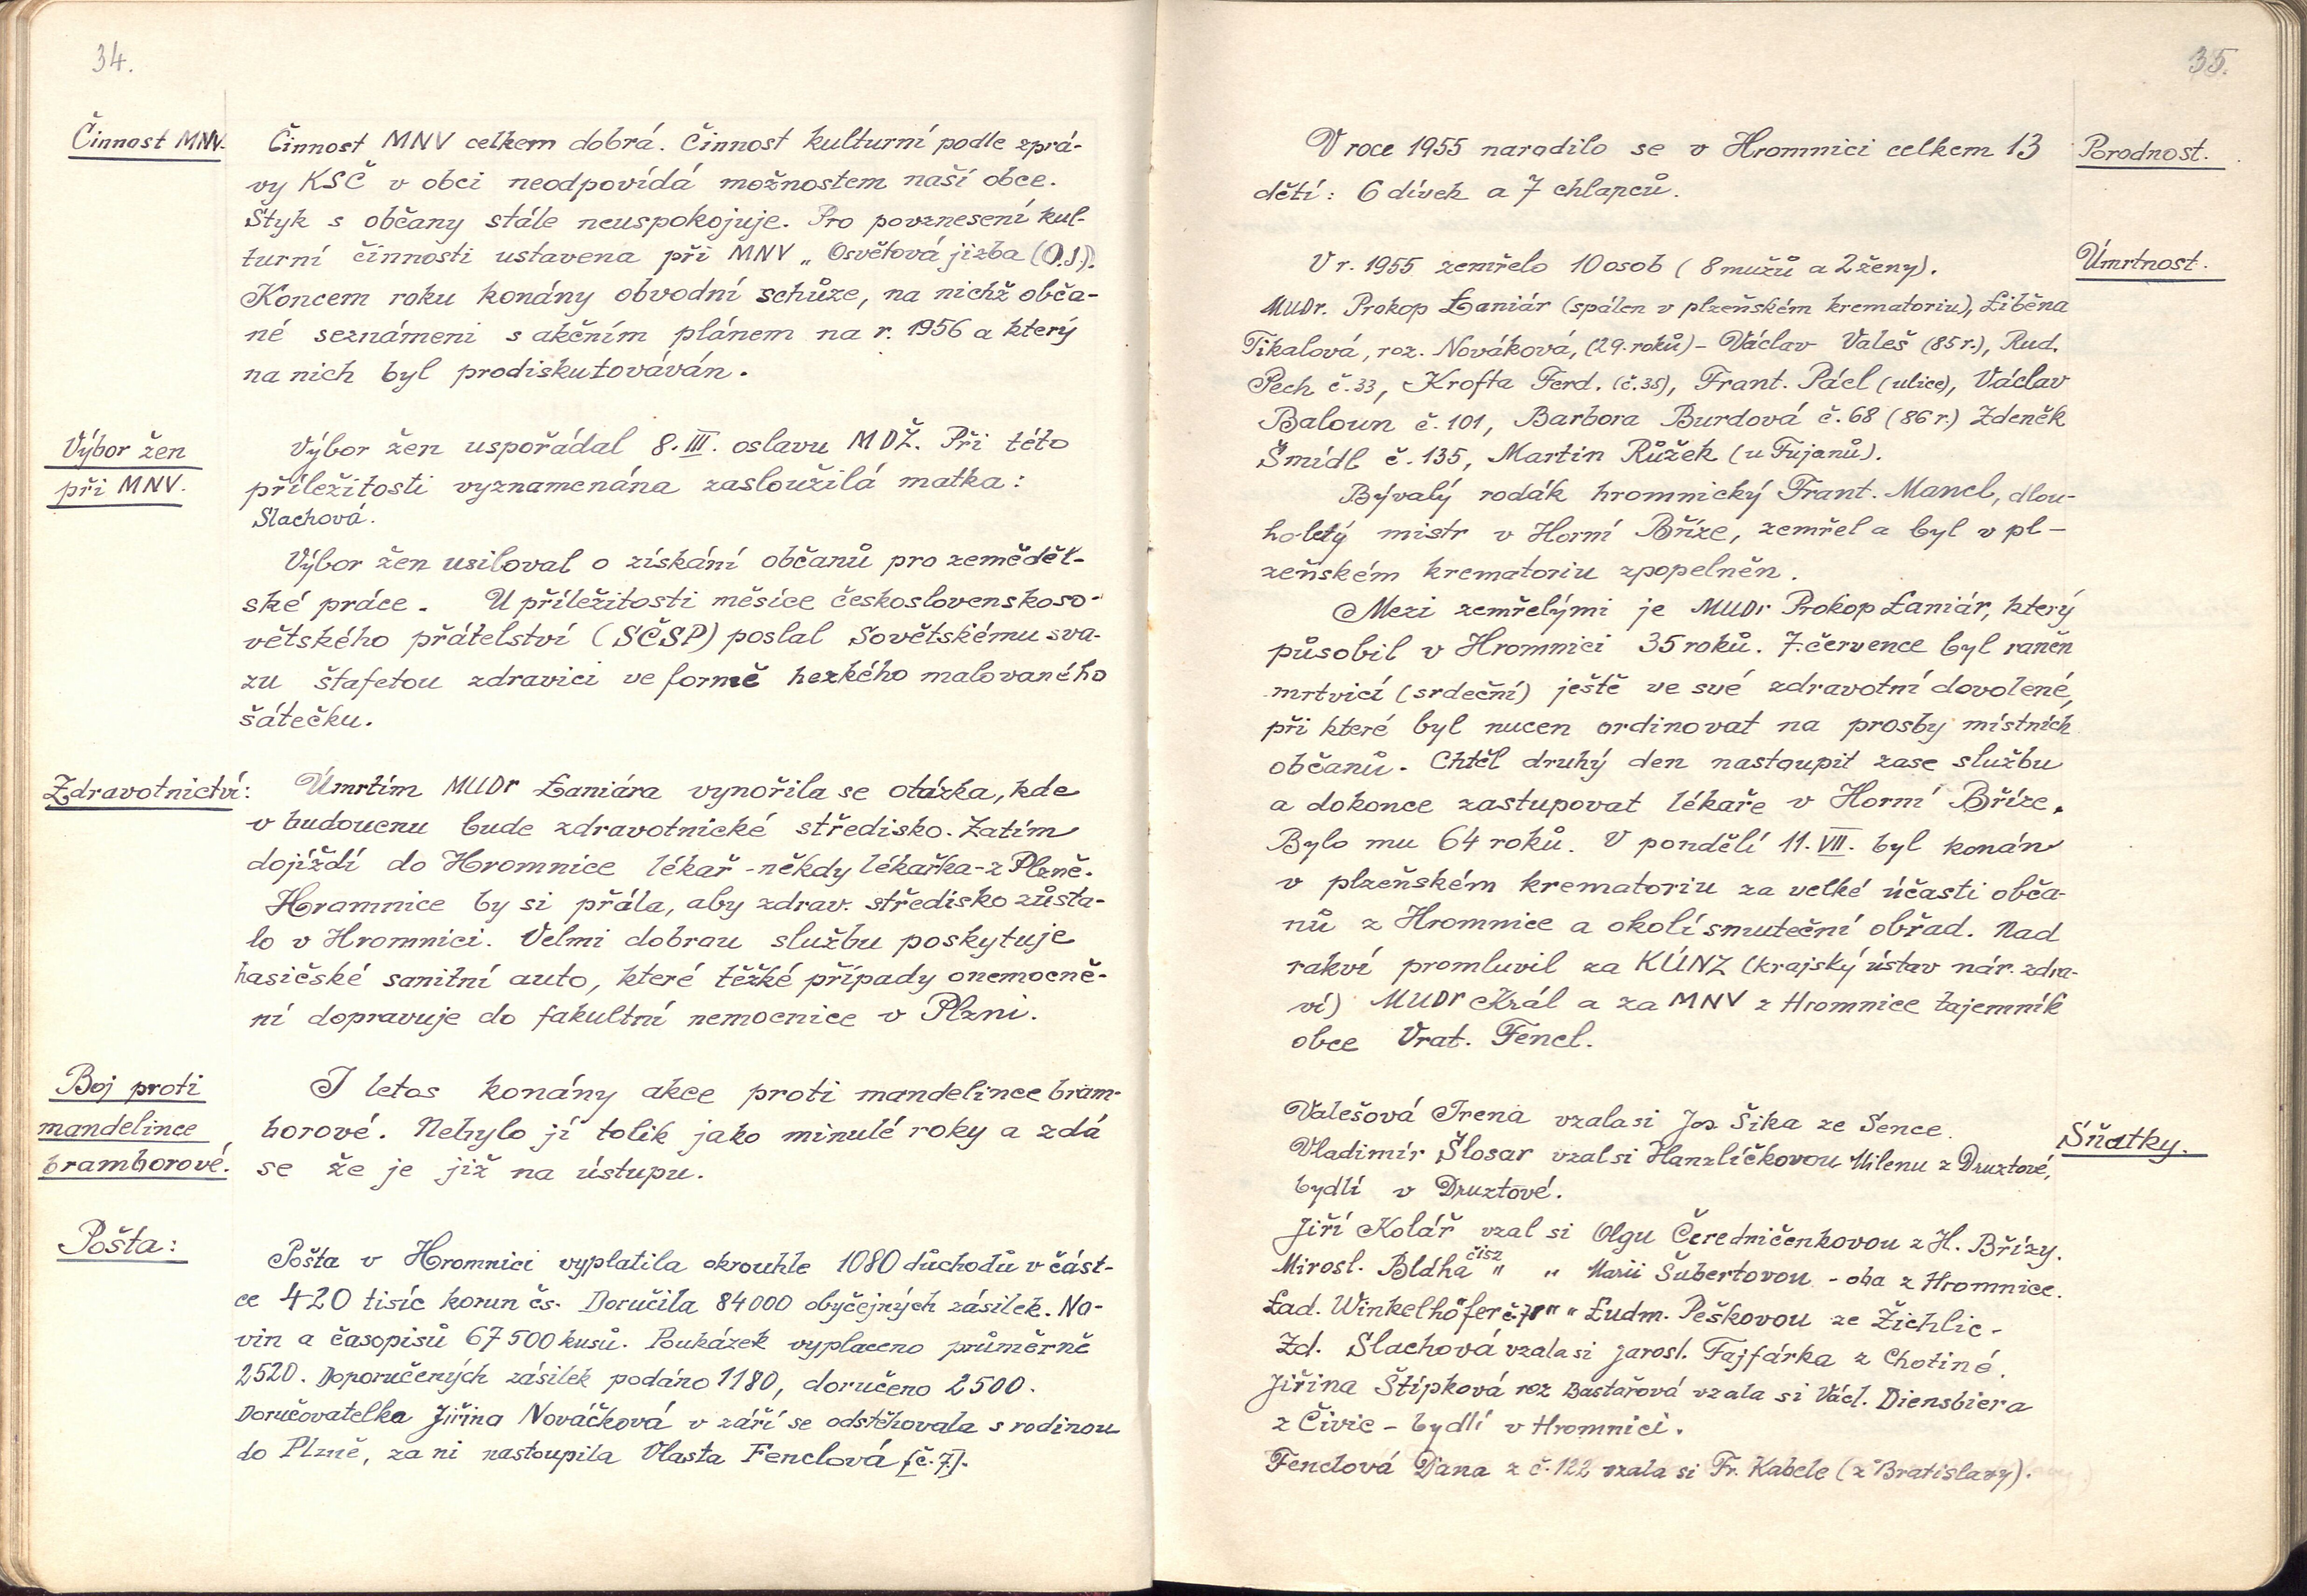 34.
Činnost MNV.
Činnost MNV celkem dobrá. Činnost kulturní podle zprá-
vy KSČ v obci neodpovídá možnostem naší obce.
Styk s občany stále neuspokojuje. Pro povznesení kul-
turní činnosti ustavena při MNV „ Osvětová jizba (O.J.).
Koncem roku konány obvodní schůze, na nichž obča-
né seznámeni s akčním plánem na r. 1956 a který
na nich byl prodiskutováván.
Výbor žen
při MNV.
Výbor žen uspořádal 8. III. oslavu MDŽ. Při této
příležitosti vyznamenána zasloužilá matka:
Slachová.
Výbor žen usiloval o získání občanů pro zeměděl-
ské práce. U příležitosti měsíce československoso-
větského přátelství (SČSP) poslal Sovětskému sva-
zu štafetou zdravici ve formě hezkého malovaného
šátečku.
Zdravotnictví:
Úmrtím MUDr Laniára vynořila se otázka, kde
v budoucnu bude zdravotnické středisko. Zatím
dojíždí do Hromnice lékař - někdy lékařka - z Plzně.
Hromnice by si přála, aby zdrav. středisko zůsta-
lo v Hromnici. Velmi dobrou službu poskytuje
hasičské sanitní auto, které těžké případy onemocně-
ní dopravuje do fakultní nemocnice v Plzni.
Boj proti
mandelince
bramborové.
I letos konány akce proti mandelince bram-
borové. Nebylo jí tolik jako minulé roky a zdá
se že je již na ústupu.
Pošta:
Pošta v Hromnici vyplatila okrouhle 1080 důchodů v část-
ce 420 tisíc korun čs. Doručila 84000 obyčejných zásilek. No-
vin a časopisů 67500 kusů. Poukázek vyplaceno průměrně
2520. Doporučených zásilek podáno 1180, doručeno 2500.
Doručovatelka Jiřina Nováčková v září se odstěhovala s rodinou
do Plzně, za ni nastoupila Vlasta Fenclová [č. 7].
35.
V roce 1955 narodilo se v Hromnici celkem 13
dětí: 6 dívek a 7 chlapců.
Porodnost.
V r. 1955 zemřelo 10 osob (8 mužů a 2 ženy).
Úmrtnost.
MUDr. Prokop Laniár (spálen v plzeňském krematoriu), Liběna
Tikalová, roz. Nováková, (29. roků) - Václav Valeš (85 r.), Rud.
Pech č. 33, Krofta Ferd. (č. 35), Frant. Pácl (ulice), Václav
Baloun č. 101, Barbora Burdová č. 68 (86 r.) Zdeněk
Šmídl č. 135, Martin Růžek (u Fujanů).
Bývalý rodák hromnický Frant. Mancl, dlou-
holetý mistr v Horní Bříze, zemřel a byl v pl-
zeňském krematoriu zpopelněn.
Mezi zemřelými je MUDr Prokop Laniár, který
působil v Hromnici 35 roků. 7. července byl raněn
mrtvicí (srdeční) ještě ve své zdravotní dovolené,
při které byl nucen ordinovat na prosby místních
občanů. Chtěl druhý den nastoupit zase službu
a dokonce zastupovat lékaře v Horní Bříze.
Bylo mu 64 roků. V pondělí 11. VII. byl konán
v plzeňském krematoriu za velké účasti obča-
nů z Hromnice a okolí smuteční obřad. Nad
rakví promluvil za KÚNZ (krajský ústav nár. zdra-
ví) MUDr Král a za MNV z Hromnice tajemník
obce Vrat. Fencl.
Sňatky.
Valešová Irena vzala si Jos Šika ze Sence.
Vladimír Šlosar vzal si Hanzlíčkovou Milenu z Druztové,
bydlí v Druztové.
Jiří Kolář vzal si Olgu Čeredničenkovou z H. Břízy.
Mirosl. Bláha " " Marii Šubertovou - oba z Hromnice.
Lad. Winkelhöfer " " Ludm. Peškovou ze Žichlic.
Zd. Slachová vzala si Jarosl. Fajfárka z Chotiné.
Jiřina Štípková roz Bastařová vzala si Václ. Diensbiera
z Čivic - bydlí v Hromnici.
Fenclová Dana z č. 122 vzala si Fr. Kabele (z Bratislavy).